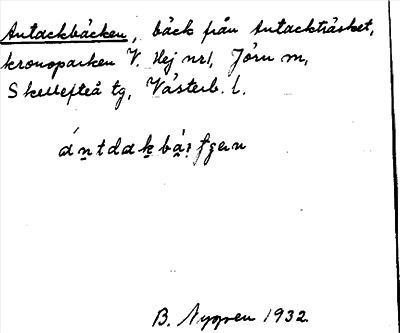 Antackbäcken, bäck från Antackträsket,
kronoparken V. Hej nr 1, Jörn sn,
Skellefteå tg, Västerb. l.
B. Nygren 1932.